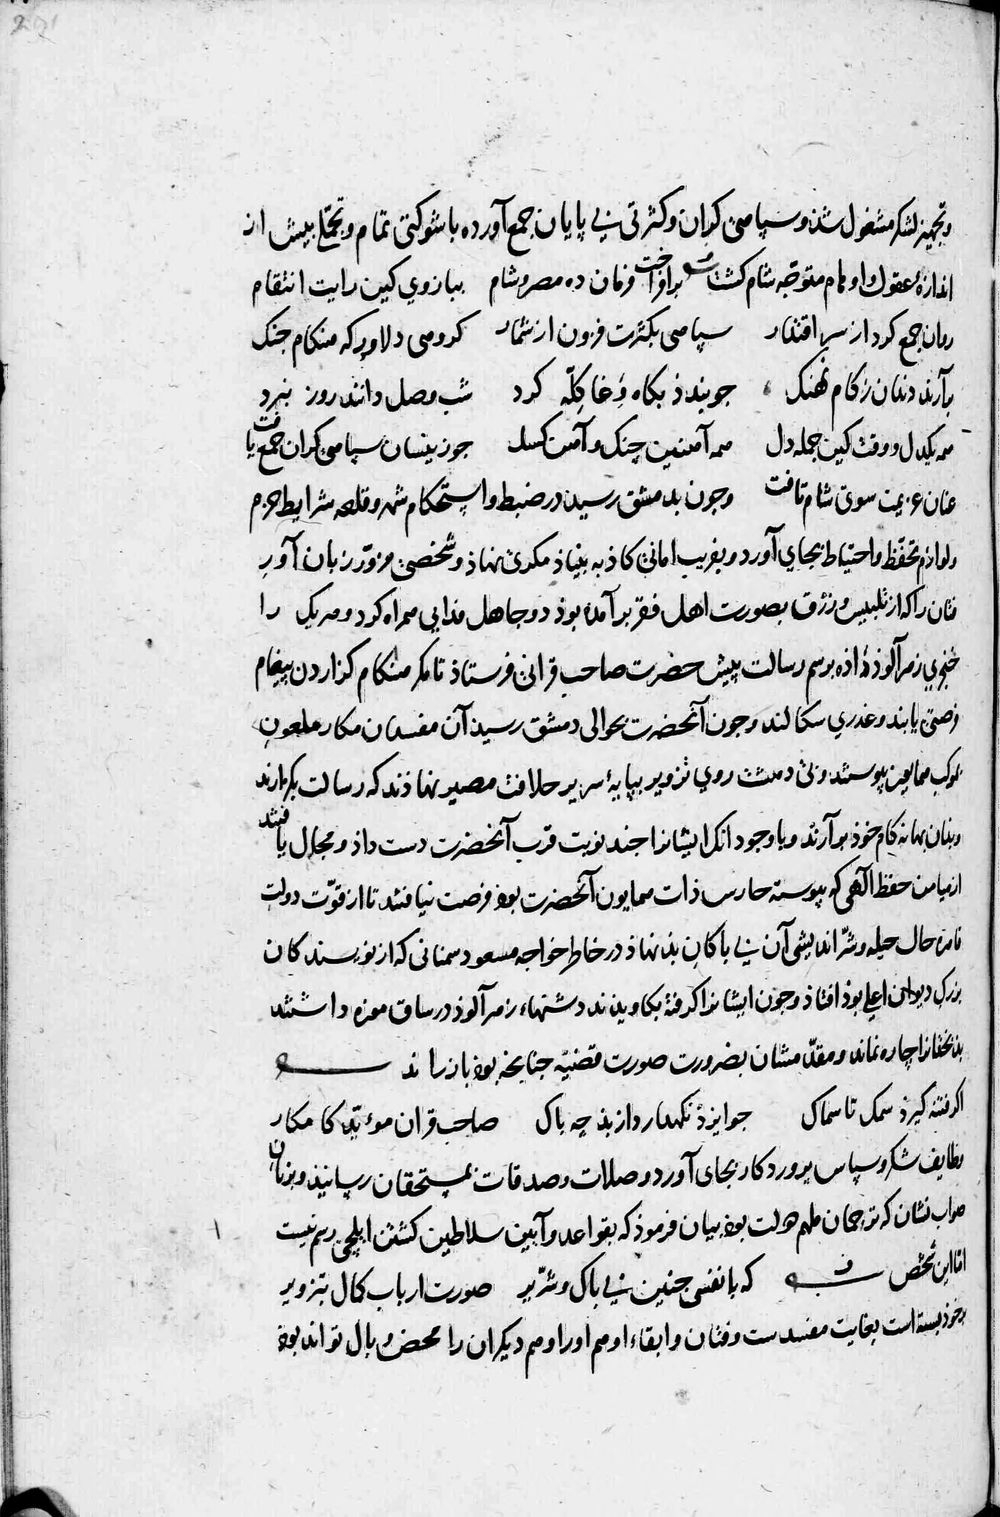 وتجهیز لشکر مشغول شذ و سپاهی کران و کثرتی بی پایان جمع آورده باشوکتی تمام و تجملی بیش از
اندازهٔ عقول و اوهام متوجه شام کشت برافراخت فرمان ده مصر و شام ببازوی کین رایت انتقام
روان جمع کرد از سر اقتدار سپاهی بکثرت فزون از شمار کروهی دلاور که هنکام جنک
برآرند دندان ز کام نهنک جویند ذ بکاه وغا کلّه کرد شب وصل دانند روز نبرد
همه یکدل و وقت کین جمله دل همه آهنین چنک و آهن کسل چون زینسان سپاهی کران جمع یافت
عنان عزیمت سوی شام تافت وجون بدمشق رسید در ضبط و استحکام شهر و قلعه شرایط حزم
ولوازم تحفّظ و احتیاط بجای آورد و بفریب امانیّ کاذبه بنیاذ مکری نهاذ و شخصی مزوّر زبان آور
فتان را که از تلبیس و زرق بصورت اهل فقر برآمده بوذ دو جاهل فدایی همراه کرد و هریک را
خنجری زهرآلوذ داذه برسم رسالت پیش حضرت صاحب قرانی فرستاذ تا مکر هنکام کزاردن پیغام
فرصتی یابند و غدری سکالند وجون آنحضرت بحوالی دمشق رسید آن مفسدان مکار ملعون
بموکب همایون پیوستند و روی تزویر بپایهٔ سریر خلافت مصیر نهاذند که رسالت بکزارند
و بذان بهانه کام خوذ برآرند و با وجود انک ایشانرا جند نوبت قرب آنحضرت دست داذ و مجال یافتند
از میامن حفظ الهی که پیوسته حارس ذات همایون آنحضرت بوذ فرصت نیافتند تا از قوّت دولت
قاهره حال حیله و شرّ اندیشی آن بی باکان بذ نهاذ در خاطر خواجه مسعود سمنانی که از نویسندکان
بزرک دیوان اعلی بوذ افتاذ وجون ایشانرا کرفته بکاویدند دشنهاء زهرآلوذ در ساق موزه داشتند
بذبختانرا چاره نماند و مقدّمشان بضرورت صورت قضیّه جنانجه بوذ باز راند
اکر فتنه کیرذ سمک تا سماک جو ایزذ نکهدار دار بذ چه باک صاحب قران مؤیّد کامکار
وظایف شکر و سپاس پروردکار بجای آورد و صلات و صدقات بمستحقان رسانیذ و بزبان
صواب نشان که ترجمان ملهم دولت بوذ بیان فرموذ که بقواعد و آیین سلاطین کشتن ایلچی رسم نیست
امّا این شخص که با نفسی جنین بی باک و شرّیر صورت ارباب کمال بتزویر
برخوذ بسته است بغایت مفسدست و فتان و ابقاء او هم اورا و هم دیکران را محض وبال تواند بوذ